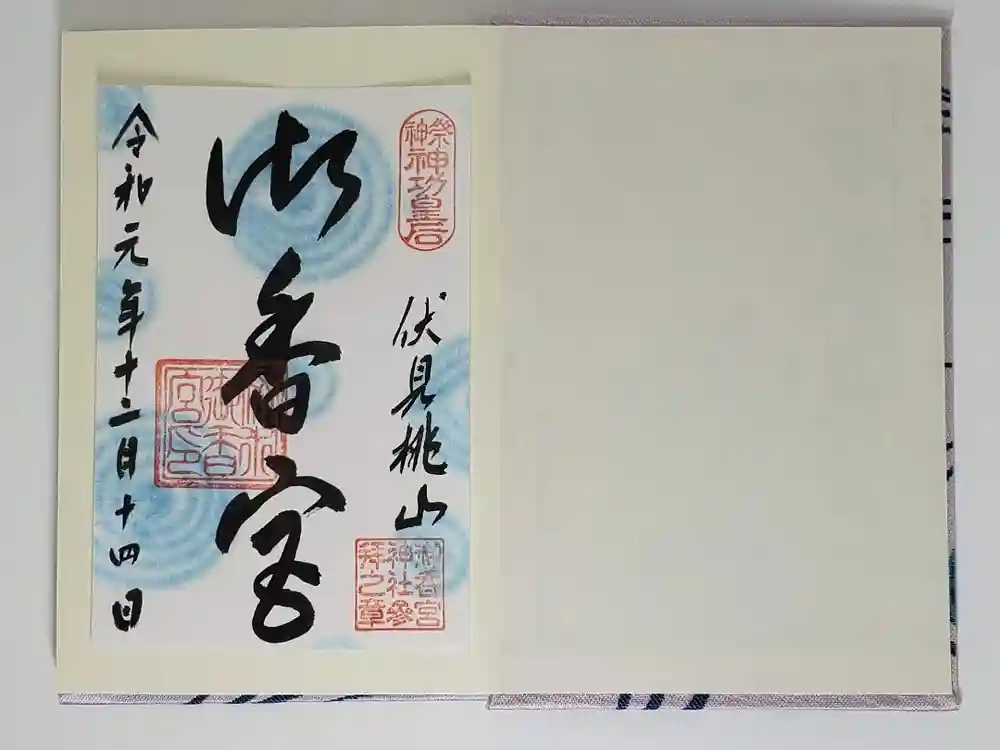 祭神
神功皇后
伏見桃山
御香宮
神社參
拜之章
御香宮
御香
宮印
令和元年十二月十四日